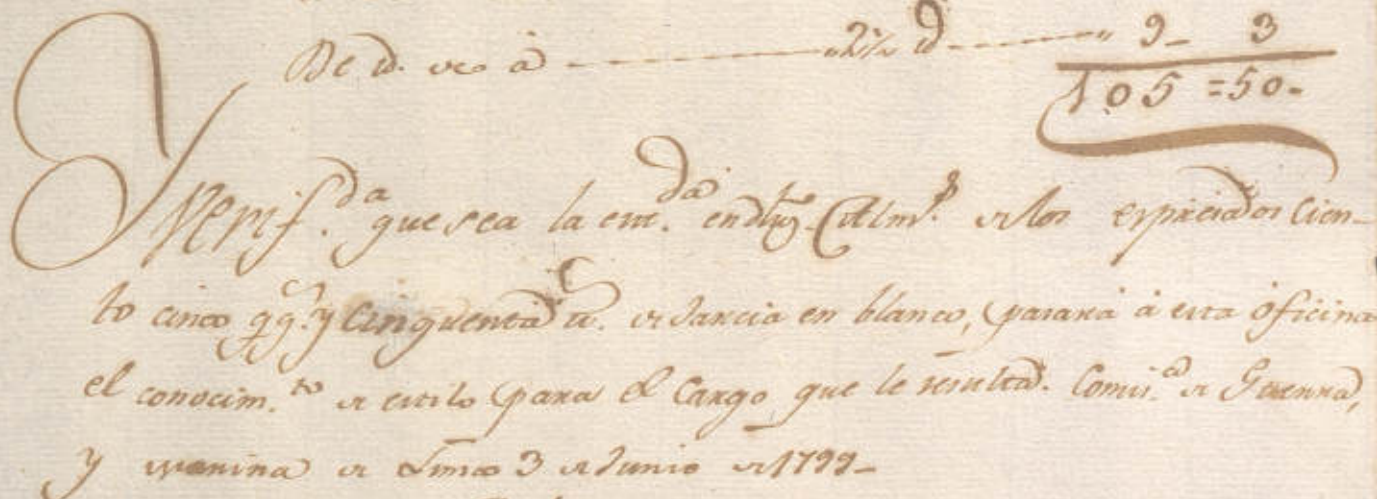 De id. de a 2½ d 9 3
105 = 50.
Y Verif.da que sea la ent.da en dhõs Alm.s de los expresados Cien-
to cinco qq.s y Cinquenta tt. de Jarcia en blanco, pasará á esta oficina
el conocim.to de estilo para el Cargo que le resulta. Comis.a de Guerra,
y Marina de Lima 3 de Junio de 1799-